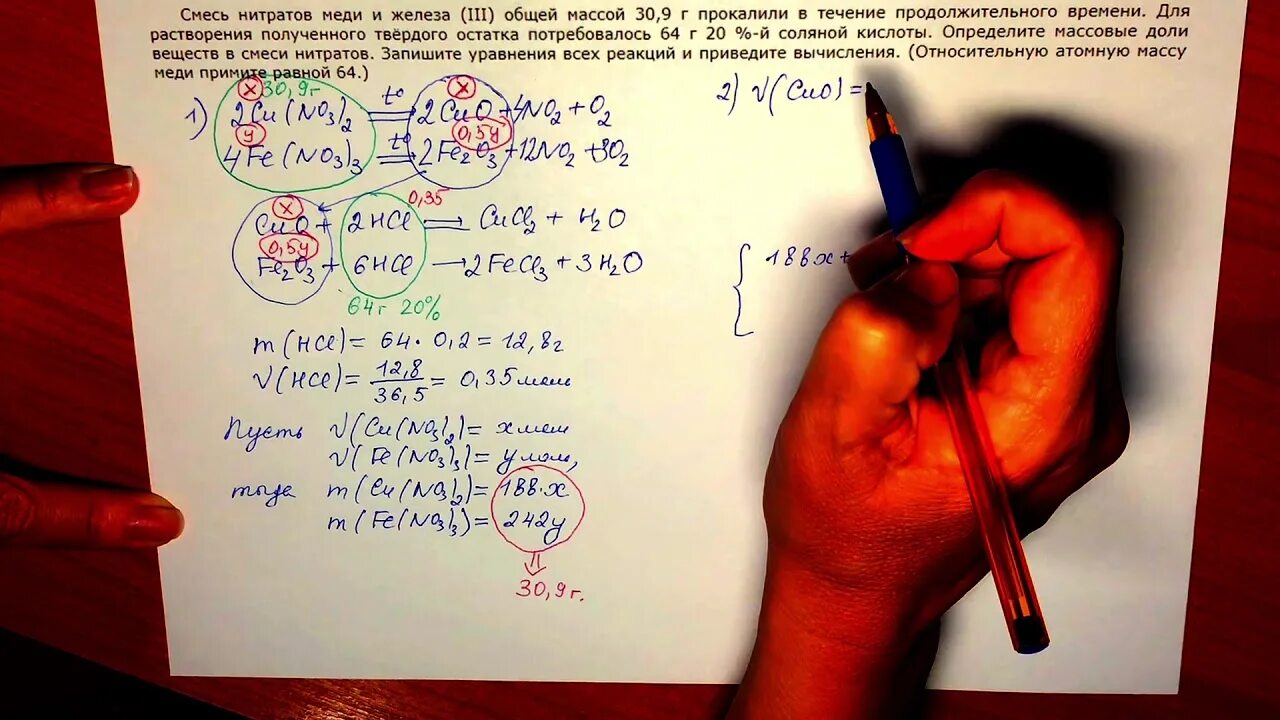 Смесь нитратов меди и железа (III) общей массой 30,9 г прокалили в течение продолжительного времени. Для
растворения полученного твёрдого остатка потребовалось 64 г 20 %-й соляной кислоты. Определите массовые доли
веществ в смеси нитратов. Запишите уравнения всех реакций и приведите вычисления. (Относительную атомную массу
меди примите равной 64.)
x 30,9г x
1) 2Cu(NO3)2 =t°= 2CuO + 4NO2 + O2
y 0,5y
4Fe(NO3)3 =t°= 2Fe2O3 + 12NO2 + 3O2
x 0,35
CuO + 2HCl = CuCl2 + H2O
0,5y
Fe2O3 + 6HCl → 2FeCl3 + 3H2O
64г 20%
m(HCl) = 64 · 0,2 = 12,8г
ν(HCl) = 12,8/36,5 = 0,35моль
Пусть ν(Cu(NO3)2) = x моль
ν(Fe(NO3)3) = y моль,
тогда m(Cu(NO3)2) = 188·x
m(Fe(NO3)3) = 242y
⇓
30,9г.
2) ν(CuO) =
{ 188x +